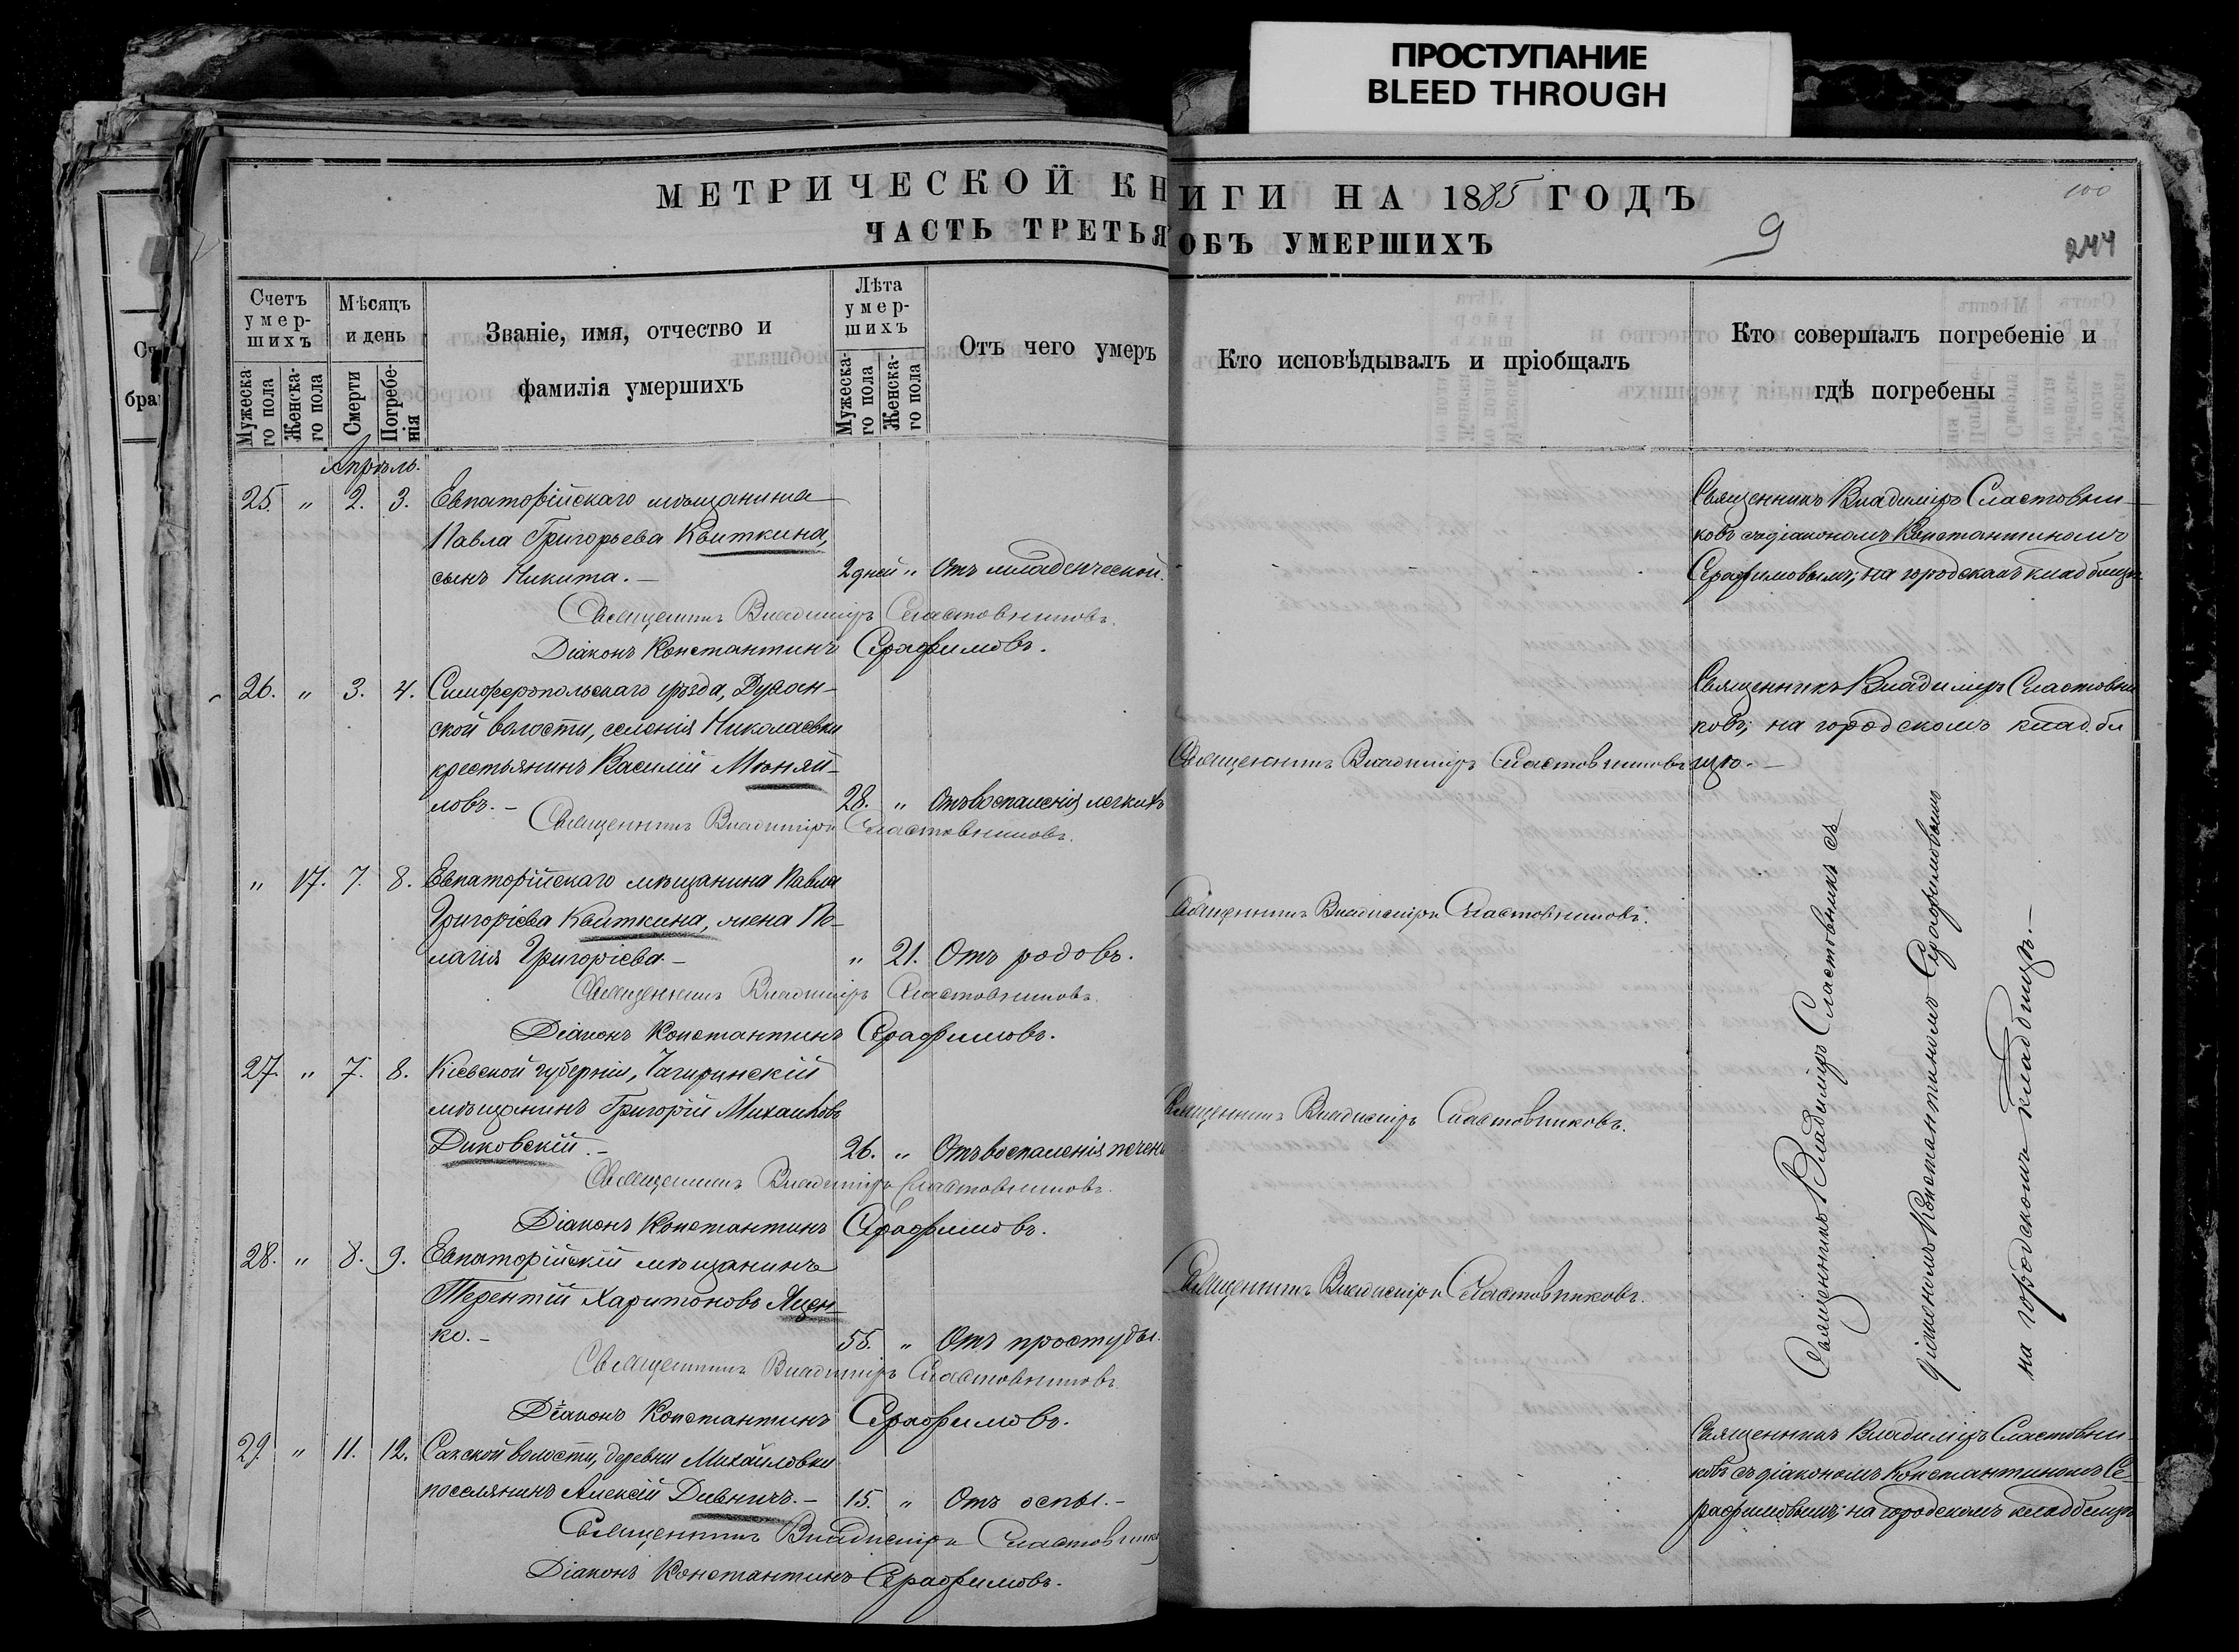 ПРОСТУПАНИЕ
BLEED THROUGH
МЕТРИЧЕСКОЙ КНИГИ НА 1885 ГОДЪ
100
ЧАСТЬ ТРЕТЬЯ ОБЪ УМЕРШИХЪ
9
244
Счетъ умер-шихъ
Мужеска-го пола
Женска-го пола
Мѣсяцъ и день
Смерти
Погребе-нія
Званіе, имя, отчество и
фамилія умершихъ
Лѣта умер-шихъ
Мужеска-го пола
Женска-го пола
Отъ чего умеръ
Кто исповѣдывалъ и пріобщалъ
Кто совершалъ погребеніе и
гдѣ погребены
Апрѣль.
25. " 2. 3. Евпаторійскаго мѣщанина
Павла Григорьева Квиткина,
сынъ Никита. — 2 дней " Отъ младенческой.
Священникъ Владиміръ Сластовни-
ковъ съ діакономъ Константиномъ
Серафимовымъ; на городскомъ кладбищѣ
Священникъ Владиміръ Сластовниковъ.
Діаконъ Константинъ Серафимовъ.
26. " 3. 4. Симферопольскаго уѣзда,
ской волости, селенія Николаевки
крестьянинъ Василій
ловъ. — 28. " Отъ воспаленія легкихъ
Священникъ Владиміръ Сластовниковъ
Священникъ Владиміръ Сластовни
ковъ; на городскомъ кладби
щѣ. —
Священникъ Владиміръ Сластовниковъ.
" 17. 7. 8. Евпаторійскаго мѣщанина Павла
Григоріева Квиткина, жена Пе-
лагія Григоріева. — " 21. Отъ родовъ.
Священникъ Владиміръ Сластовниковъ.
Священникъ Владиміръ Сластовниковъ.
Діаконъ Константинъ Серафимовъ.
27. " 7. 8. Кіевской губерніи, Чигиринскій
мѣщанинъ Григорій Михайловъ
Диковскій. — 26. " Отъ воспаленія печени
Священникъ Владиміръ Сластовниковъ.
Священникъ Владиміръ Сластовниковъ.
Діаконъ Константинъ Серафимовъ.
28. " 8. 9. Евпаторійскій мѣщанинъ
Терентій Харитоновъ Яцен-
ко. — 55. " Отъ простуды.
Священникъ Владиміръ Сластовниковъ.
Священникъ Владиміръ Сластовниковъ
Діаконъ Константинъ Серафимовъ.
Священникъ Владиміръ Сластовниковъ съ
діакономъ Константиномъ Серафимовымъ
на городскомъ кладбищѣ. —
29. " 11. 12. Сакской волости, деревни Михайловки
поселянинъ Алексій Дивничъ. — 15. " Отъ оспы. —
Священникъ Владиміръ Сластовни
ковъ съ діакономъ Константиномъ Се-
рафимовымъ; на городскомъ кладбищѣ
Священникъ Владиміръ Сластовников
Діаконъ Константинъ Серафимовъ.